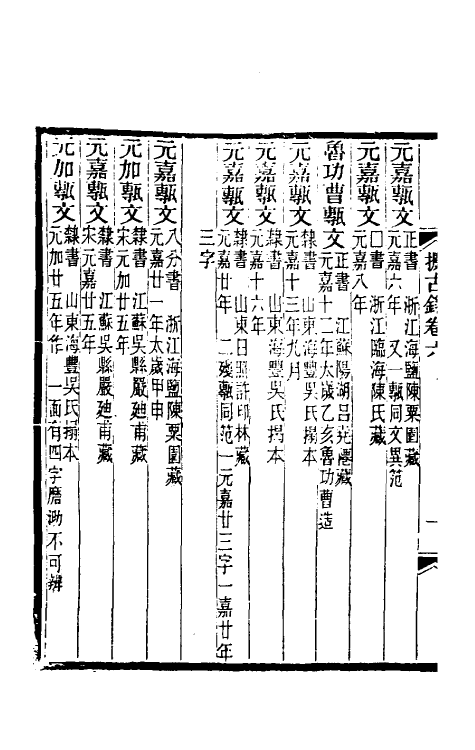 攈古錄卷六
一
元嘉甎文
正書 浙江海鹽陳粟園藏
元嘉六年 又一甎同文異范
元嘉甎文
□書 浙江臨海陳氏藏
元嘉八年
魯功曹甎文
正書 江蘇陽湖呂堯僊藏
元嘉十二年太歲乙亥魯功曹造
元嘉甎文
隸書 山東海豐吳氏搨本
元嘉十三年九月
元嘉甎文
隸書 山東海豐吳氏搨本
元嘉十六年
元嘉甎文
隸書 山東日照許印林藏
元嘉廿年 二殘甎同范一元嘉廿三字一嘉廿年
三字
元嘉甎文
八分書 浙江海鹽陳粟園藏
元嘉廿一年太歲甲申
元加甎文
隸書 江蘇吳縣嚴廸甫藏
宋元加廿五年
元嘉甎文
隸書 江蘇吳縣嚴廸甫藏
宋元嘉廿五年
元加甎文
隸書 山東海豐吳氏搨本
元加廿五年作 一面有四字磨泐不可辨